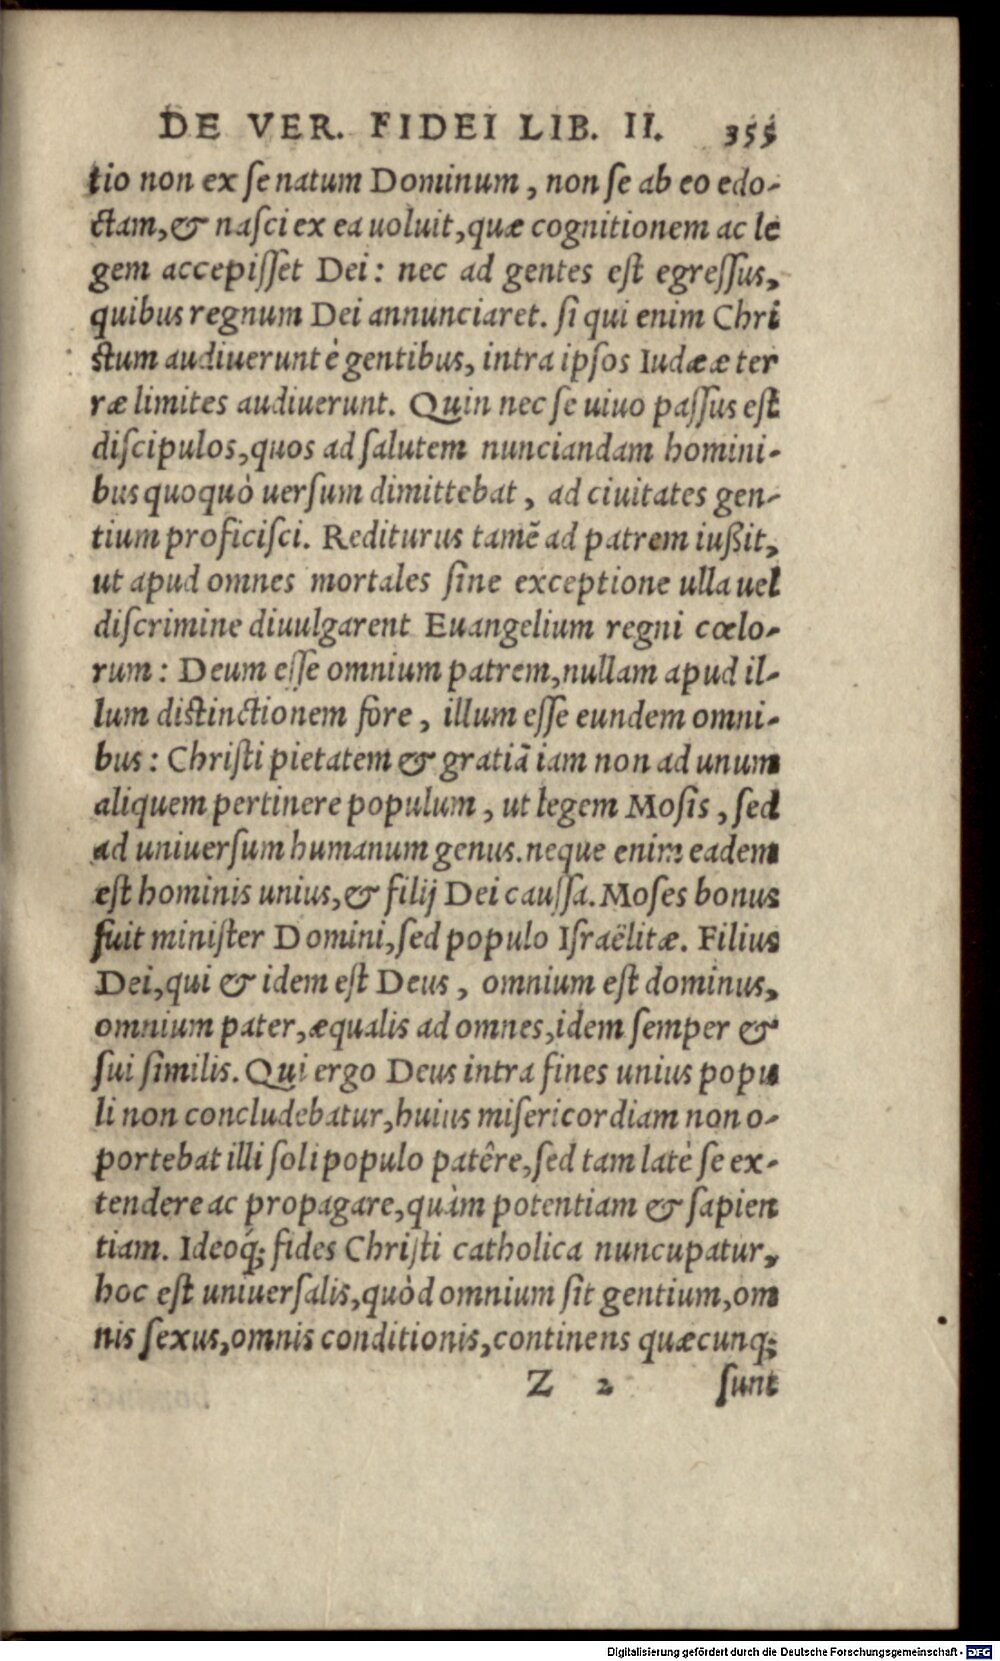 DE VER. FIDEI LIB. II. 355
tio non ex se natum Dominum, non se ab eo edo-
ctam, & nasci ex ea uoluit, quæ cognitionem ac le
gem accepisset Dei: nec ad gentes est egressus,
quibus regnum Dei annunciaret. si qui enim Chri
stum audiuerunt è gentibus, intra ipsos Iudææ ter
ræ limites audiuerunt. Quin nec se uiuo passus est
discipulos, quos ad salutem nunciandam homini-
bus quoquò uersum dimittebat, ad ciuitates gen-
tium proficisci. Rediturus tamẽ ad patrem iußit,
ut apud omnes mortales sine exceptione ulla uel
discrimine diuulgarent Euangelium regni cœlo-
rum: Deum esse omnium patrem, nullam apud il-
lum distinctionem fore, illum esse eundem omni-
bus: Christi pietatem & gratiã iam non ad unum
aliquem pertinere populum, ut legem Mosis, sed
ad uniuersum humanum genus. neque enim eadem
est hominis unius, & filij Dei caussa. Moses bonus
fuit minister Domini, sed populo Israëlitæ. Filius
Dei, qui & idem est Deus, omnium est dominus,
omnium pater, æqualis ad omnes, idem semper &
sui similis. Qui ergo Deus intra fines unius popu
li non concludebatur, huius misericordiam non o-
portebat illi soli populo patêre, sed tam latè se ex-
tendere ac propagare, quàm potentiam & sapien
tiam. Ideoq́; fides Christi catholica nuncupatur,
hoc est uniuersalis, quòd omnium sit gentium, om
nis sexus, omnis conditionis, continens quæcunq;
Z 2 sunt
Digitalisierung gefördert durch die Deutsche Forschungsgemeinschaft - DFG